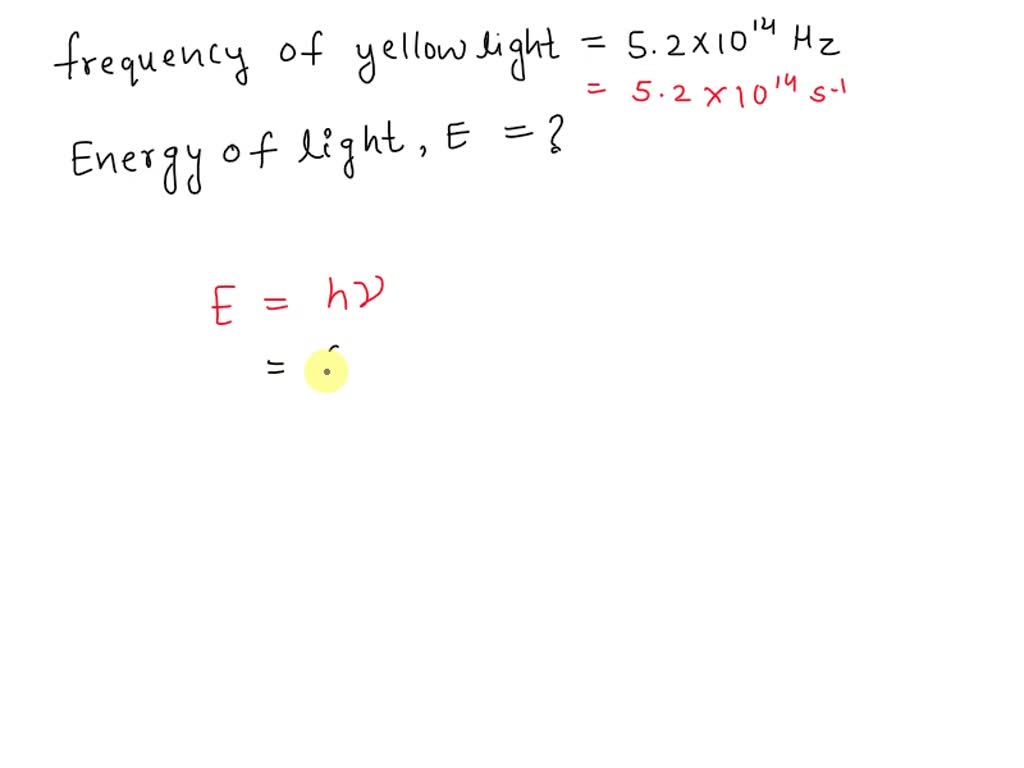 frequency of yellow light = 5.2×10¹⁴ Hz
= 5.2×10¹⁴ s⁻¹
Energy of light, E = ?
E = hν
=